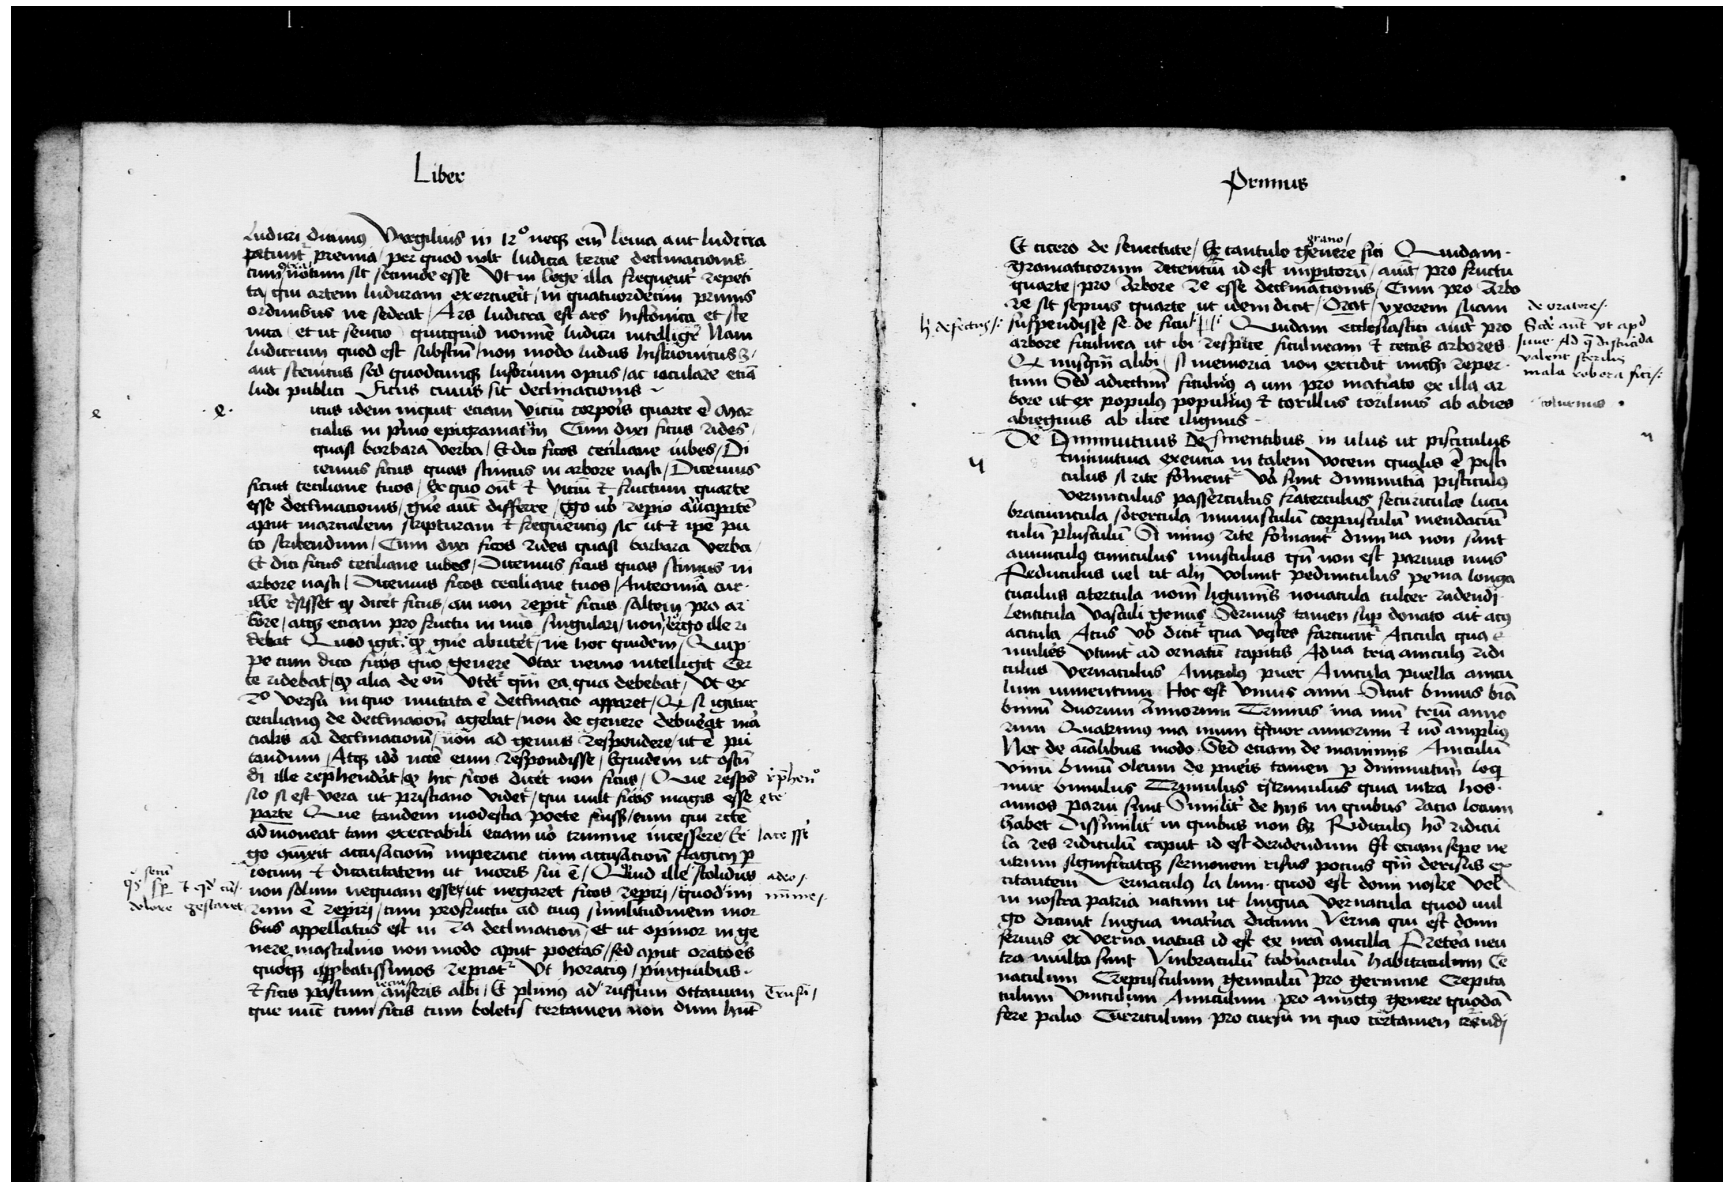 Liber
ludicri dicimus Virgilius in 12º neqꝫ em̄ leuia aut ludicra
petunt̄ premia / per quod uolt ludicra tercie declinacionis
cum notum sit secunde esse Ut in lege illa frequent̄ repeti
ta / qui artem ludicram exercuerit / in quatuordecim primis
ordinibus ne sedeat / Ars ludicra est ars histrionica et sce
nica / et ut sencio quicquid nomē ludicri intelligit̄ Nam
ludicrum quod est substm̄ / non modo ludus histrionicus
aut scenicus sed quodcunqꝫ lusorium opus / ac ioculare etiā
ludi publici Ficus cuius sit declinacionis
icus idem inquit eciam viciū corporis quarte ē Mar
cialis in primo epigramatum Cum dixi ficus rides
quasi barbara verba / Et dici ficos ceciliane iubes / Di
cemus ficus quas scimus in arbore nasci / Dicemus
ficus ceciliane tuos / Ex quo et viciū et fructum quarte
esse declinacionis / que aut̄ differre / Ego uº repio
aput marcialem scripturam et frequencius sic ut et ipē pu
to scribendum / Cum dixi ficos rides quasi barbara verba
Et dici ficus ceciliane iubes / Dicemus ficus quas scimus in
arbore nasci / Dicemus ficos ceciliane tuos / Antea cur
ille risisset qꝫ dicet̄ ficus / an non repit̄ ficus saltem pro ar
bore / atqꝫ etiam pro fructu in nuo singulari / non ergo ille ri
debat Quod igit̄ qꝫ que abutet̄ / ne hoc quidem / Quip
pe cum dico ficos quo genere utar nemo intelligit Cer
te ridebat / qꝫ alia de utet̄ qm̄ ea qua debebat / Ut ex
2º versu in quo mutata ē declinatio apparet / Qꝫ si igitur
cecilianus de declinacion̄ agebat / non de genere debuerat mar
cialis ad declinacionē / non ad genus respondere / ut ē pu
tandum / Atqꝫ idº eum respondisse / Equidem ut
di ille rephendat̄ qꝫ hic ficos dicet non ficus / Que respō
sio si est vera ut prisciano videt̄ / qui uult ficos magis esse
parte Que tandem modestia poete fuisset / eum qui recte
admoneat tam execrabili eciam uº crimine incessere / Er
go accusacionē impericie cum accusacion̄ flagicij p
iocum et dicacitatem ut moris sui ē / Quid ille stolidus
non solum nequam esset / ut negaret ficos repiri / quod mi
rum ē repiri / cum pro fructu ad cuius similitudinem mor
bus appellatus est in 2a declinacion̄ / et ut opinor in ge
nere masculino non modo aput poetas / sed aput oratores
quoqꝫ probatissimos repiat̄ Ut horatius / pinguibus
et ficis pastum iecur anseris albi / Et plinius ad ruffum octauium
que nūc cum ficis cum boletis certamen non dum hnt̄
e
e.
rephen
ete
lacessere
adeo /
nimie /
Trusci /
dolore gestaret
Primus
Et cicero de senectute / Ex tantulo genere fici Quidam
grano /
gramaticorum recenciū id est impitorū / aiūt pro fructu
quarte / pro arbore 2e esse declinacionis / Cum pro arbo
re sit sepius quarte ut idem dicit / Orat̄ / vxorem suam
suspendisse se de ficu Quidam ecclesiastici aiūt pro
arbore ficulnea ut ibi respicite ficulneam et ceteras arbores
Qꝫ nusqm̄ alibi / si memoria non excidit michi reper
tum Sed adiectiuū ficulnus a um pro materiato ex illa ar
bore ut ex populus populnus et corillus corilnus ab abies
abiegnus ab ilice ilignus
De Diminutiuis Desinentibus in ulus ut pisciculus
Diminutiua exeūcia in talem vocem qualis ē pisci
culus si rite forment̄ uº sunt diminutiua pisciculus
vermiculus passerculus fraterculus securicula lucu
bracuncula sorercula munusculū corpusculū mendaciū
culū plusculū Si minus rite formant̄ dim̄ua non sunt
auunculus cuniculus musculus qm̄ non est paruus mus
Peduculus uel ut alij volunt pedunculus perna longa
cuculus citercula nom̄ leguminis nouacula culter radendi
Lenticula vasculi genus Seruius tamen sup donato ait acus
acicula Acus uº dicit̄ qua vestes farciunt̄ Acicula qua
mulieres utunt̄ ad ornatū capitis Adua tria aniculus ridi
culus vernaculus Aniculus puer Anicula puella anicu
lum iumentum Hoc est vnius anni Sicut bimus bima
bimū duorum annorum Trimus ma mū triū anno
rum Quatrimus ma mum qtuor annorum et nō amplius
Nec de aīalibus modo Sed etiam de maximis Aniculū
vinū bimū oleum de pueris tamen p diminutiuū loqi
mur bimulus Trimulus qtrimulus quia intra hos
annos parui sunt Similit̄ de hijs in quibus racio locum
habet Dissimilit̄ in quibus non hꝫ Ridiculus hō ridicu
la res ridiculū caput id est deridendum Et etiam sepe ne
utrum significatqꝫ sermonem risus pocius qm̄ derisus ex
citantem Vernaculus la lum quod est domi nostre vel
in nostra patria natum ut lingua vernacula quod uul
go dicunt lingua materna dictum Verna qui est domi
seruus ex verna natus id est ex mea ancilla Preterea neu
tra multa sunt Vmbraculū tabernaculū habitaculum Ce
naculum Crepusculum geniculū pro germine Crepita
culum vinculum Amiculum pro amictus genere quodā
fere palio Curriculum pro cursu in quo certamen currendi
de oratore /:
Scdē aut̄ ut apd
Iuue Ad q̄ discucienda
valent sterilis
mala robora fici /:
colurnus
h̄ defectus /: